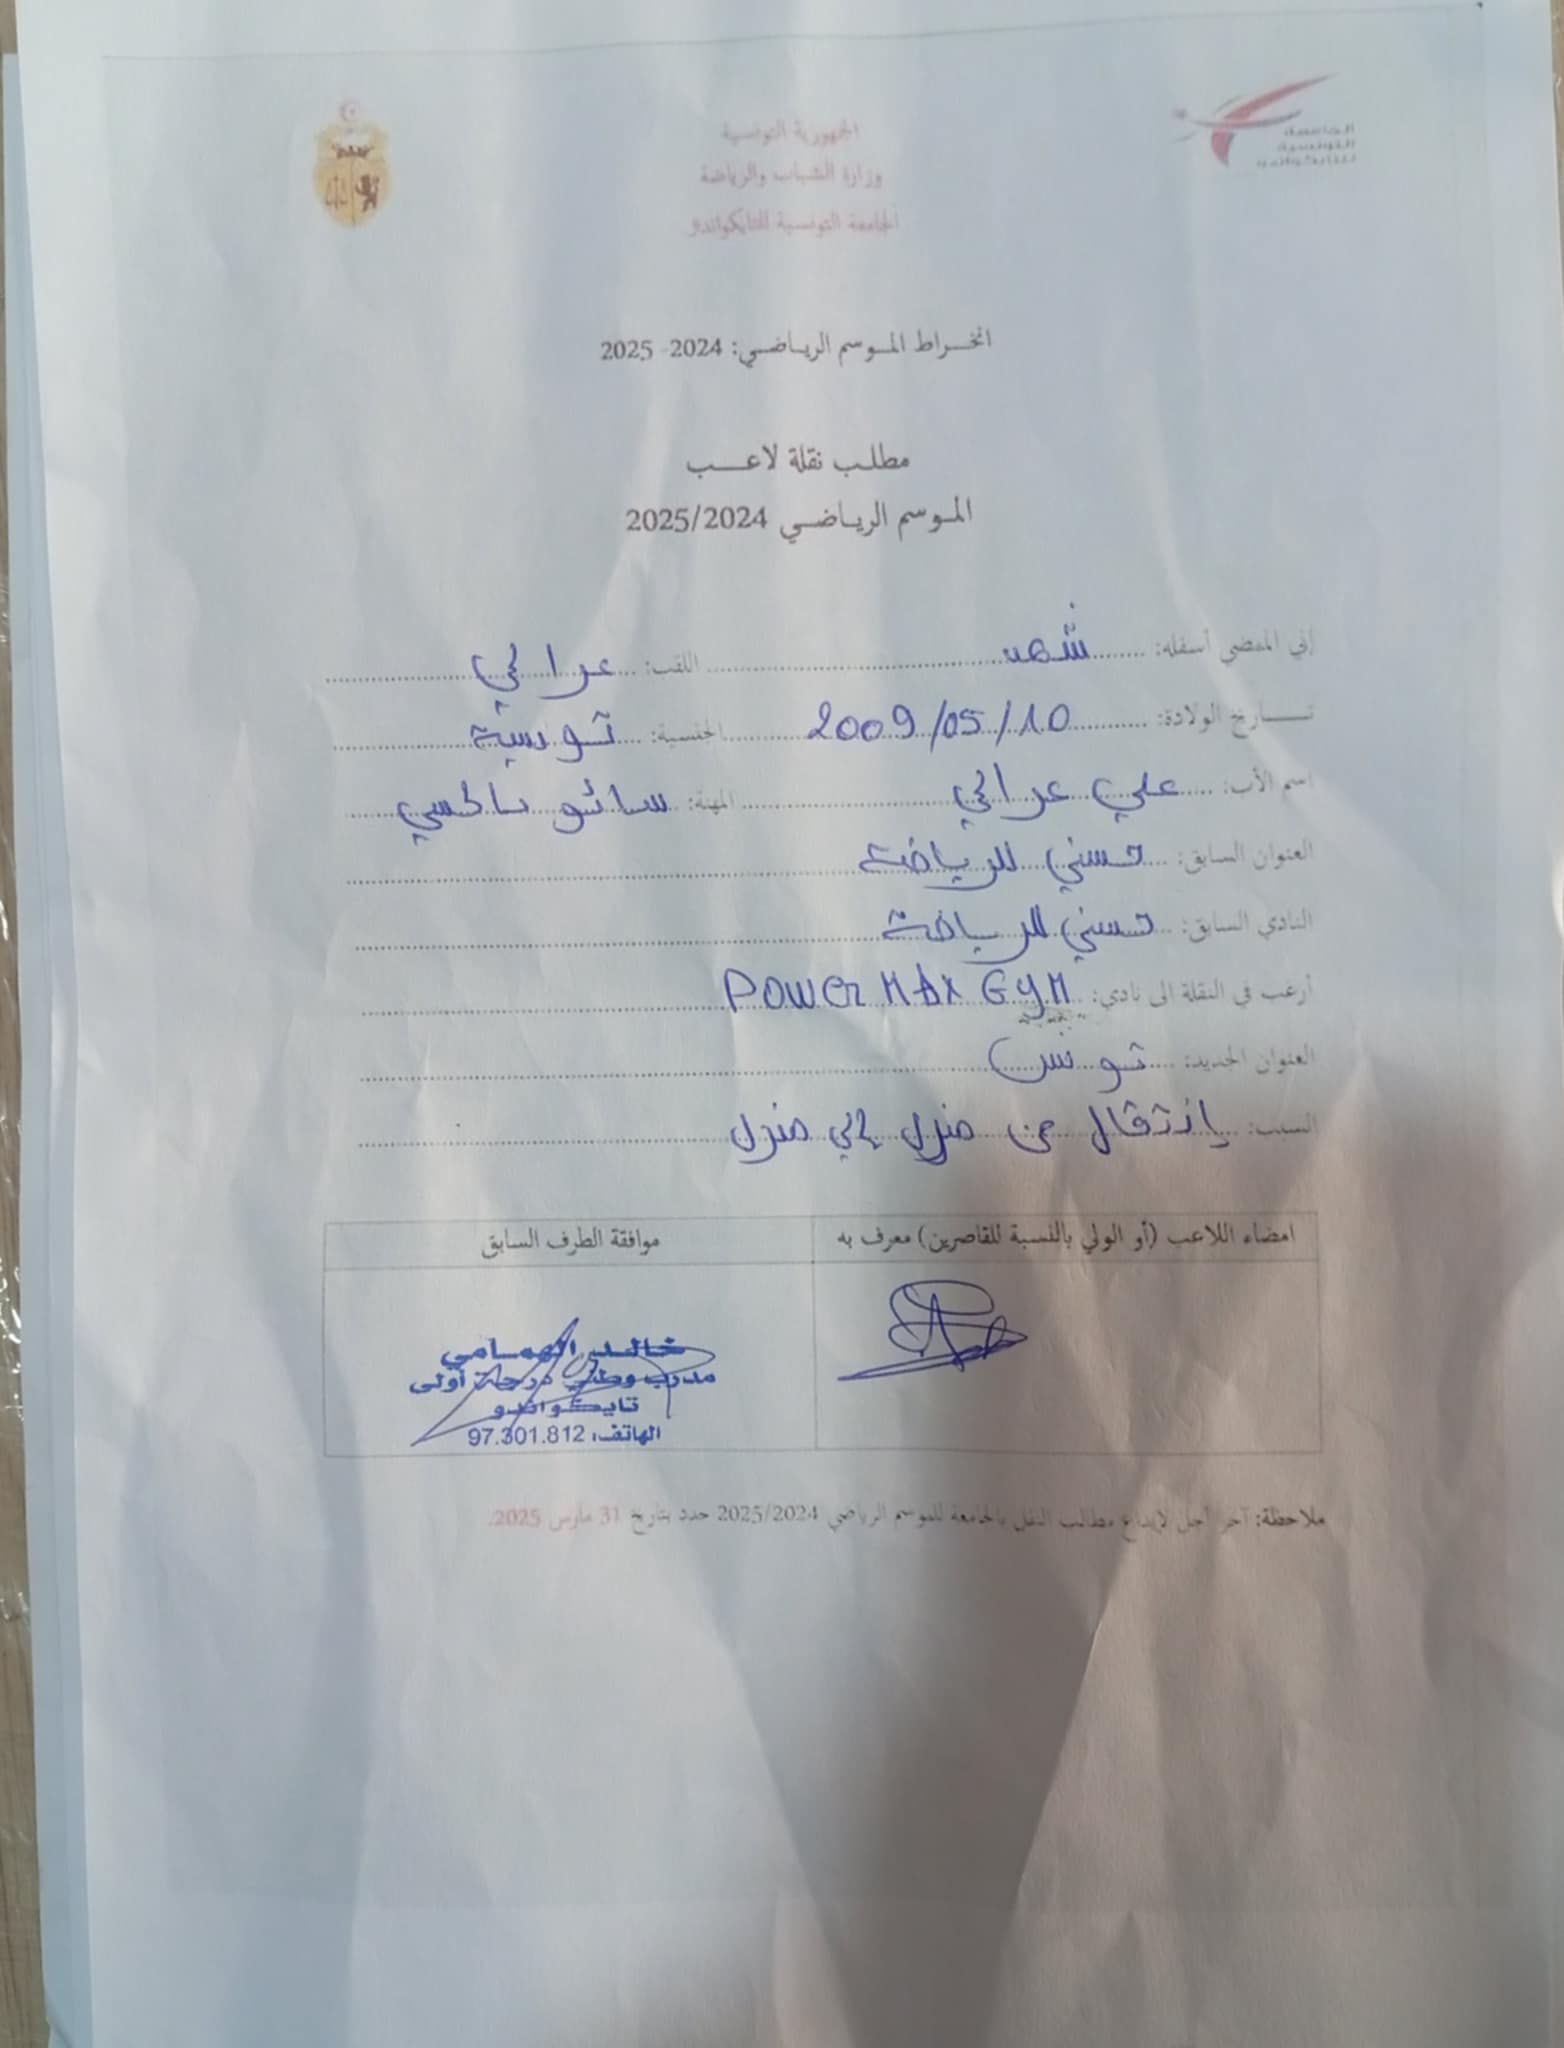 الجمهورية التونسية
وزارة الشباب والرياضة
الجامعة التونسية للتايكواندو
الجامعة
التونسية
للتايكواندو
انخراط الموسم الرياضي: 2024- 2025
مطلب نقلة لاعب
الموسم الرياضي 2025/2024
إني الممضي أسفله: شهد اللقب: عرالي
تاريخ الولادة: 2009/05/10 الجنسية: تونسية
اسم الأب: علي عرالي المهنة: سائق تاكسي
العنوان السابق: حسني للرياضة
النادي السابق: حسني للرياضة
أرغب في النقلة الى نادي: POWER MAX GYM
العنوان الجديد: تونس
السبب: إنتقال من منزل إلى منزل
امضاء اللاعب (أو الولي بالنسبة للقاصرين) معرف به
موافقة الطرف السابق
خالد الهمامي
مدرب وطني درجة أولى
تايكواندو
الهاتف: 97.301.812
ملاحظة: آخر أجل لإيداع مطالب النقل بالجامعة للموسم الرياضي 2025/2024 حدد بتاريخ 31 مارس 2025.